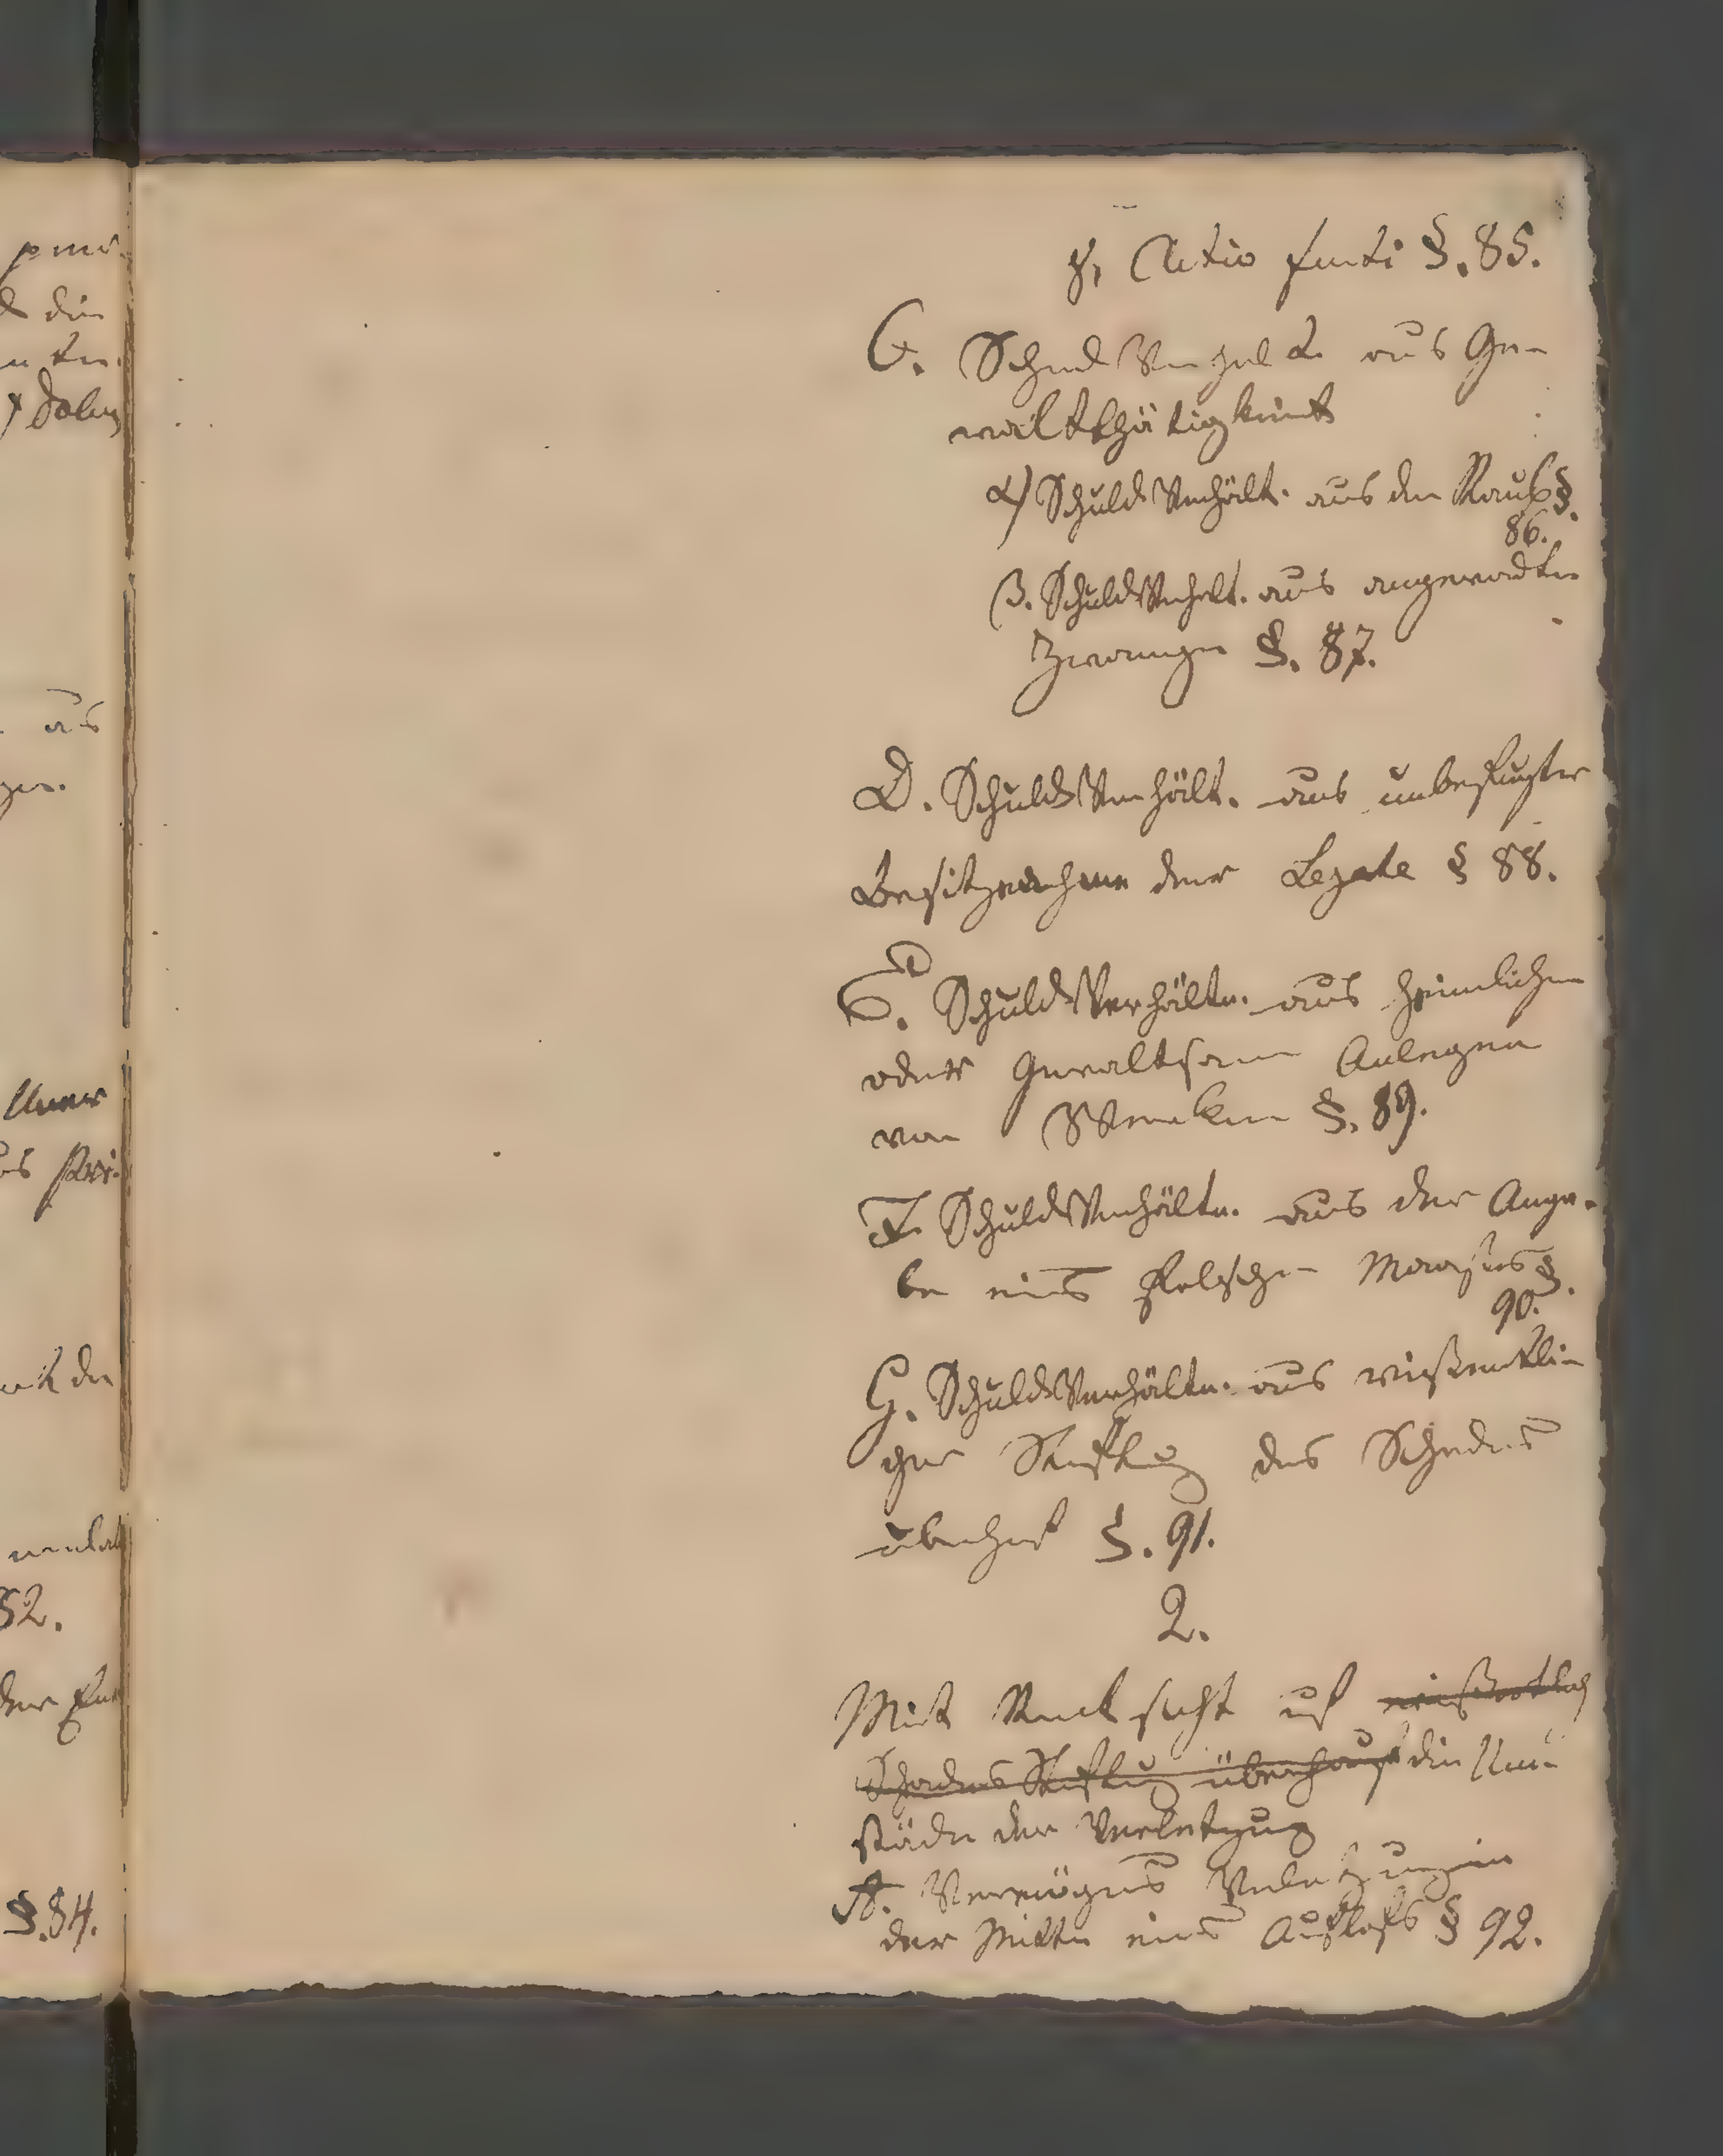 γ, Actio furti §. 85.
C. Schuld Verhält. aus Ge-
waltthätigkeit
α) Schuld Verhält. aus dem Raub §.
86.
β. Schuld Verhält. aus angewandten
Zwange §. 87.
D. Schuld Verhält. aus unbefugter
Besitznahme der Legate § 88.
E. Schuld Verhältn. aus heimlichen
oder Gewaltsam Anlegen
von Werken §. 89.
F. Schuld Verhältn. aus der Anga-
be eines falschen Maaßes §.
90.
G. Schuld Verhältn. aus wißentli-
cher Stiftung des Schadens
überhaupt §. 91.
2.
Mit Rücksicht auf wißentlich
Schadens Stiftung überhaupt die Um-
stände der Verletzung
A. Vermögens Verletzung in
der Mitte eines Auflaufs § 92.
§. 84.